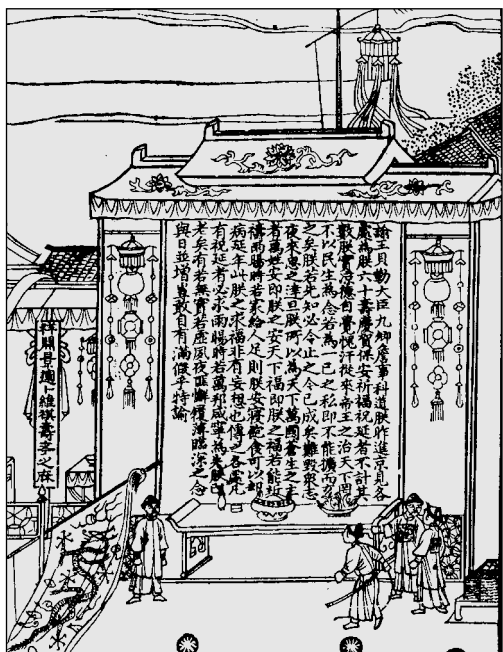 諭王貝勒大臣九卿詹事科道朕昨進京見各
處為朕六十壽慶賀保安祈福祝延者不計其
數朕實凉德自覺愧汗從來帝王之治天下罔
不以民生為念若為一己之私即不能擴而充
之矣朕若先知必令止之今已成矣難毀衆志
夜來思之達旦朕所以為天下萬國蒼生之主
者萬姓安即朕之安天下福即朕之福若能故
禱雨暘時若家給人足則朕安寢飽食可以却
病延年此朕之求福非有妄想也傳之各處凡
有祝延者必求雨暘時若萬邦咸寧為矣朕已
老矣有若無實若虛夙夜匪懈履薄臨深之念
與日並增豈敢自有滿假乎特諭
祥開景運卜維祺壽亭之在